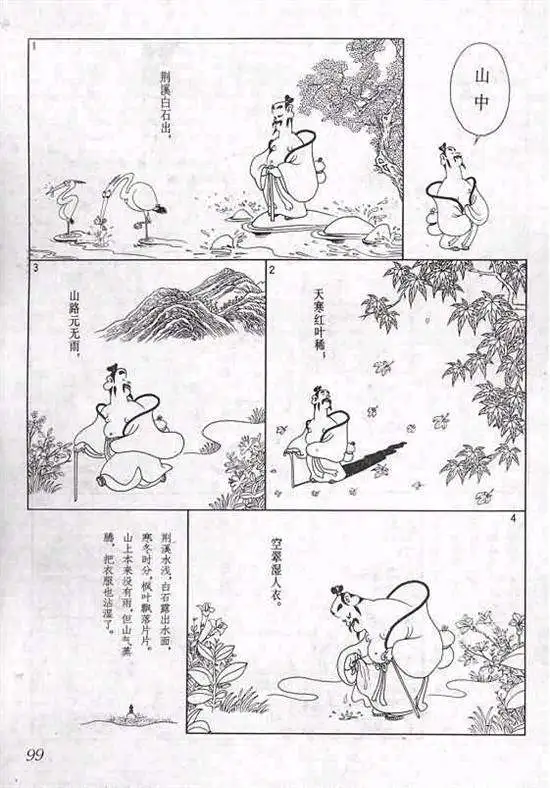 山中
1
荆溪白石出，
2
天寒红叶稀，
3
山路元无雨，
4
空翠湿人衣。
荆溪水浅，白石露出水面，
寒冬时分，枫叶飘落片片。
山上本来没有雨，但山气蒸
腾，把衣服也沾湿了。
99